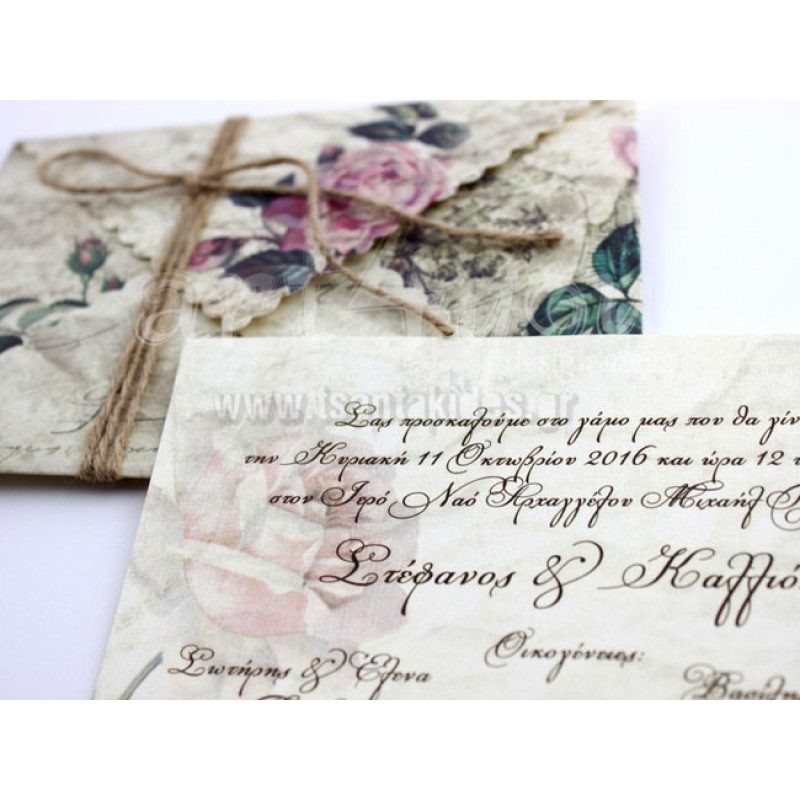 www.tsantakides.gr
Σας προσκαλούμε στο γάμο μας που θα γίν
την Κυριακή 11 Οκτωβρίου 2016 και ώρα 12 τ
στον Ιερό Ναό Αρχαγγέλου Μιχαήλ
Στέφανος & Καλλιό
Οικογένειες:
Σωτήρης & Έλενα
Βασίλη